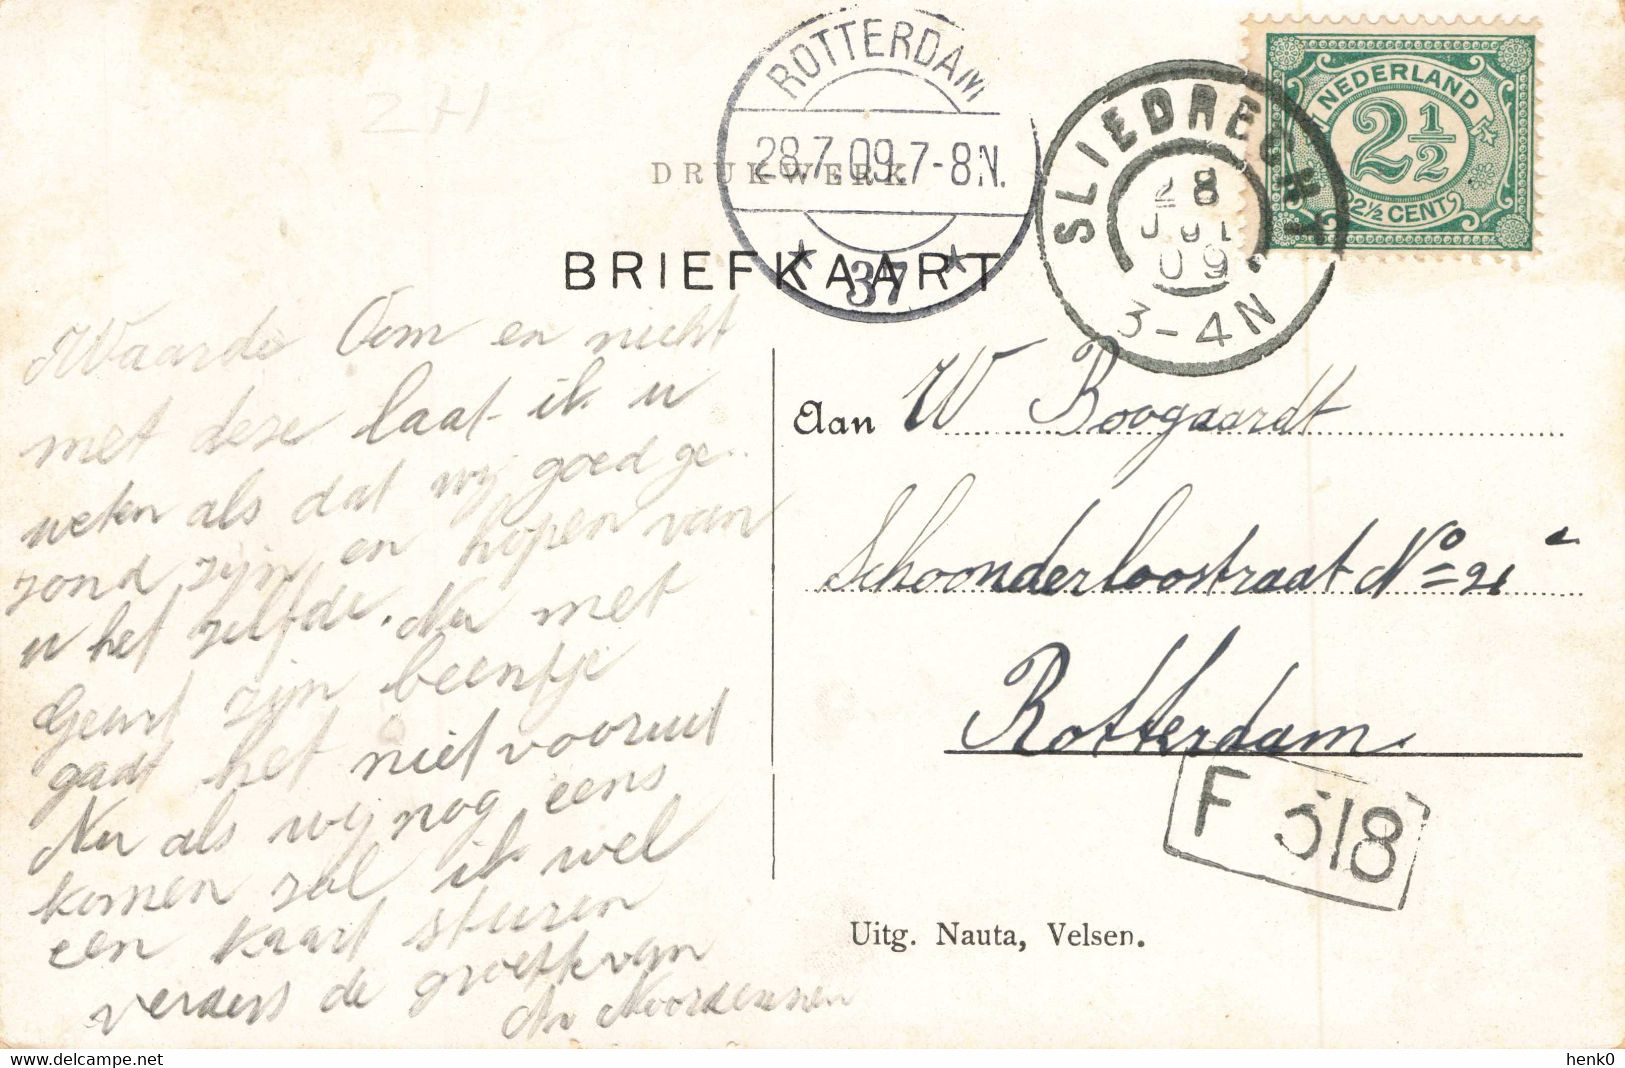 ROTTERDAM
28.7.09.7-8N.
37
SLIEDRECHT
28
JUL
09
3-4N
NEDERLAND
2 1/2
2½ CENT
ZH
DRUKWERK
BRIEFKAART
Waarde Oom en nicht
met deze laat ik u
weten als dat wij goed ge-
zond zijn en hopen van
u het zelfde. Nu met
Geurt zijn beentje
gadt het niet vooruit
Nu als wij nog eens
komen zal ik wel
een kaart sturen
verders de groete van
Aan W Boogaardt
Schoonderloostraat No 21
Rotterdam
F 518
Uitg. Nauta, Velsen.
delcampe.net
henk0